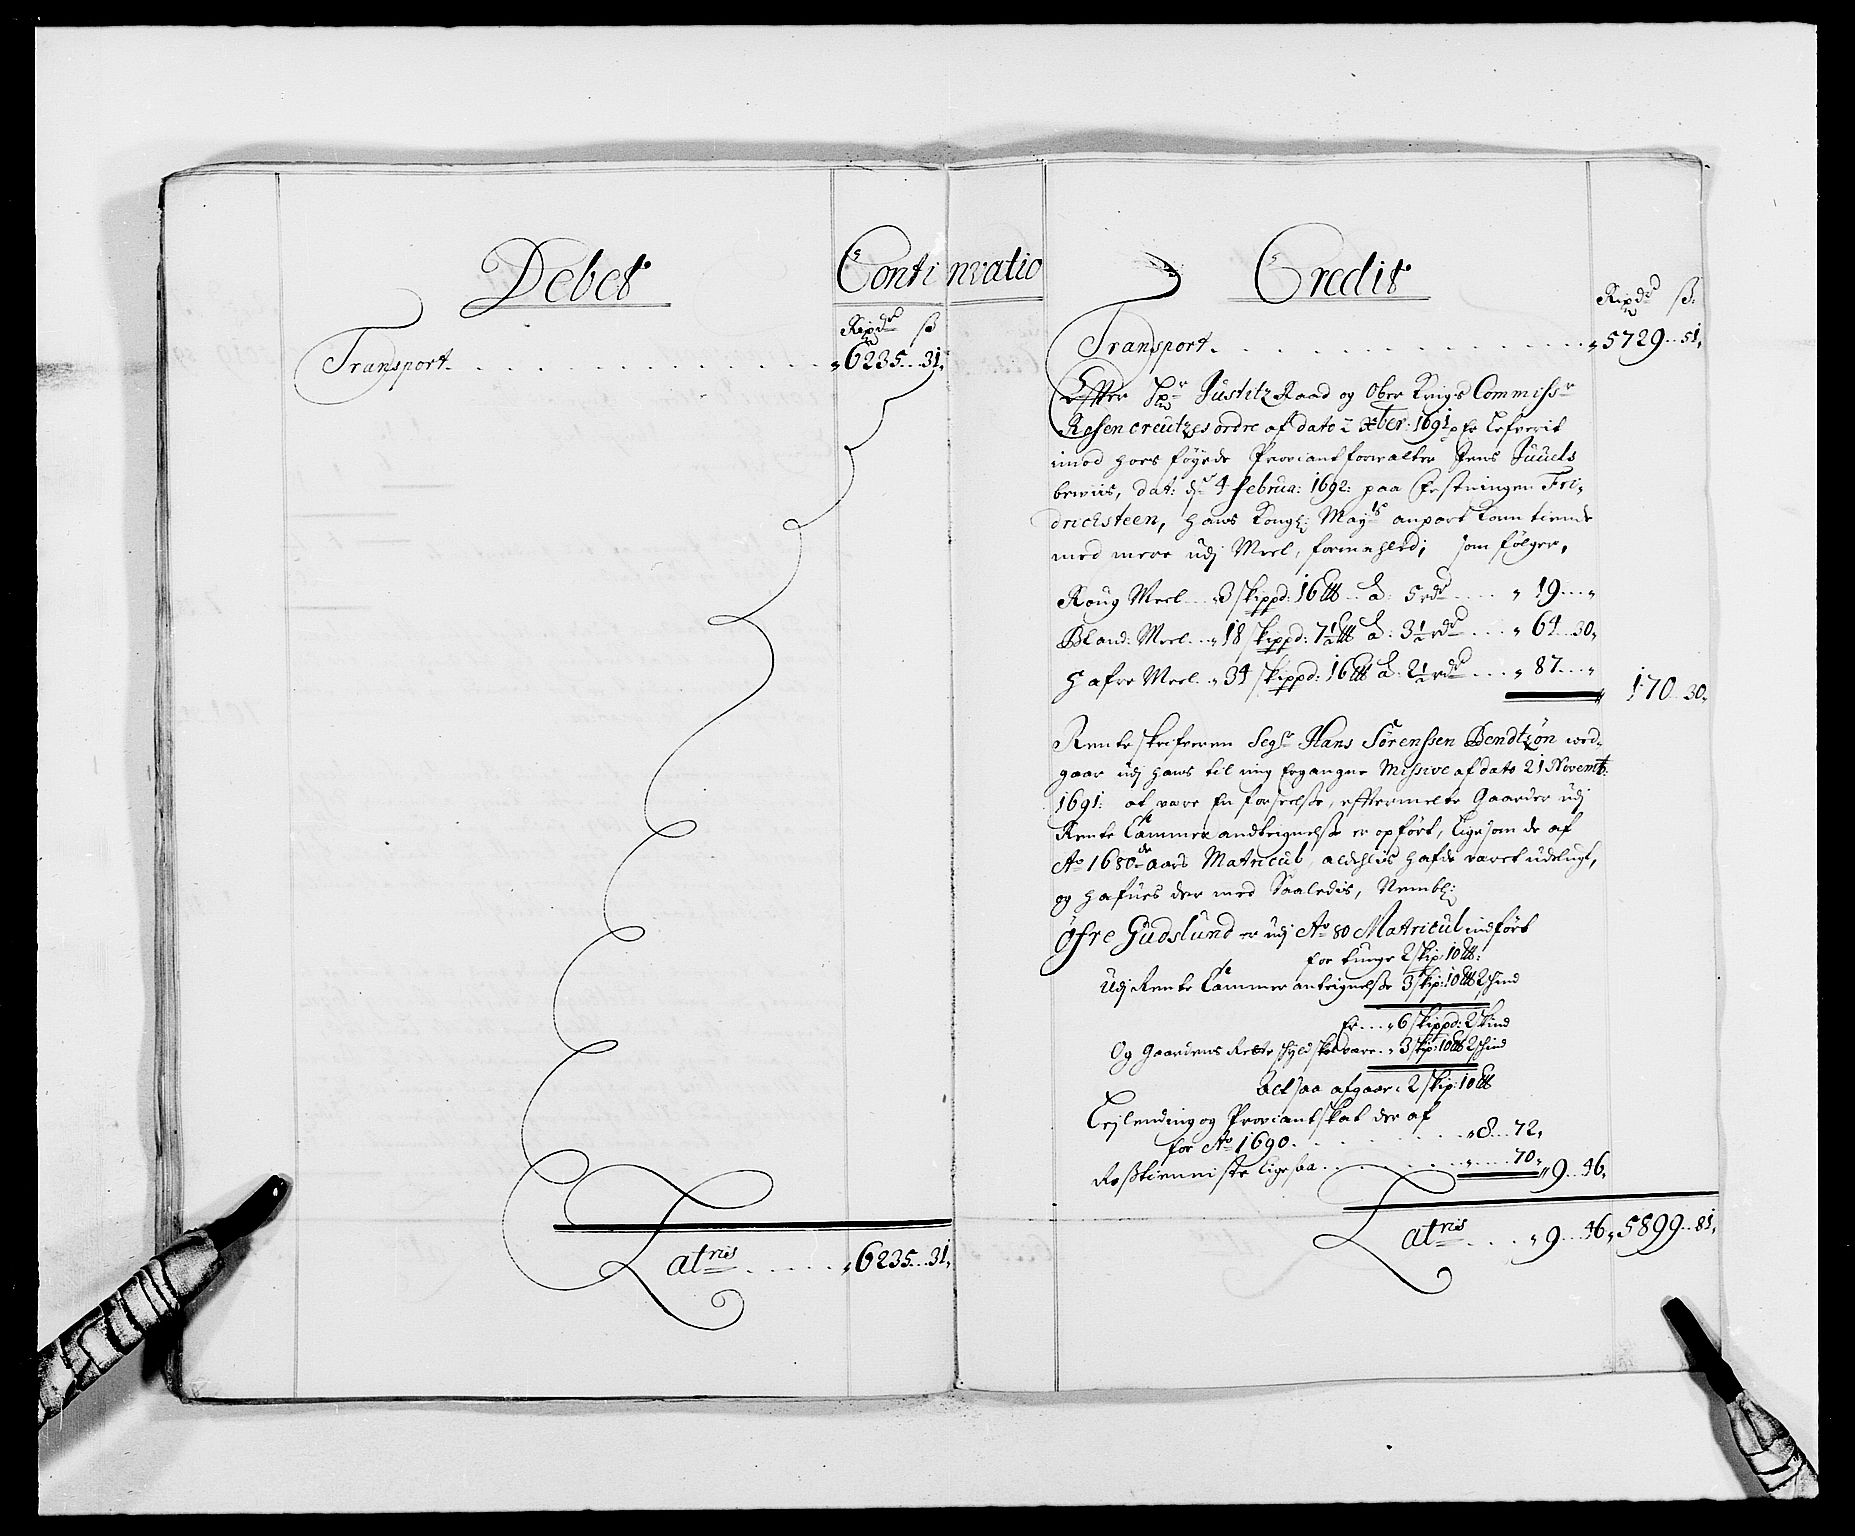 Debet
Continuatio
Rixdr ß
Transport . . . . . . . . . . „6235...31„
Latris . . . . . „6235...31„
Credit
Rixdr ß:
Transport . . . . . . . . . . „5729...51„
Efter Hr Justitz Raad og Ober Krigs Commissr
Rosencreutzes ordre af dato 2 Xber: 1691 er Lefverit
imod hoes föyede Proviantforvalter Jens Juuels
beviis, dat: dr 4 februa: 1692: paa Festningen Fri-
drichsteen, hans Kongl: Mayts anpart Korn tiende
med mere udj Meel, formahled, som fölger,
Roug Meel...„3 skippd: 16 ℔ .. à: 5 rdr .... „19...„
Bland: Meel...„18 skippd: 7½ ℔ à: 3½ rdr ... „64..30„
Hafre Meel..„34 skippd: 16 ℔ à: 2½ rdr .... „87...„
170..30„
Renteskrifveren Segr Hans Sörenssen Bendtzön ved-
gaar udj hans til mig Ergangne Missive af dato 21 Novemb:
1691: at være En forseelse, eftermelte Gaarder udj
Rente Cammer andteignelse er opfört, Ligesom de af
Ao 1680 de aars Matricul, aldehlis hafde været udelugt,
og hafues der med Saaledis, Nembl:
Öfre Gudslund er udj Ao 80 Matricul indfört
for tunge 2 skip: 10 ℔:
Udj Rente Cammer anteignelse 3 skip: 10 ℔ 2 skind
Er...„6 skippd: 2 skind
Og Gaardens Rette skyld skal være.„3 skip: 10 ℔ 2 skind
altsaa afgaar: 2 skip: 10 ℔
Leylending og Proviantskat der af
for Ao 1690 . . . . . . . „8...72„
Rosstienniste Ligesaa . . . . . . „....70„
„9...46„
Latris . . . . „9...46„ 5899...81„